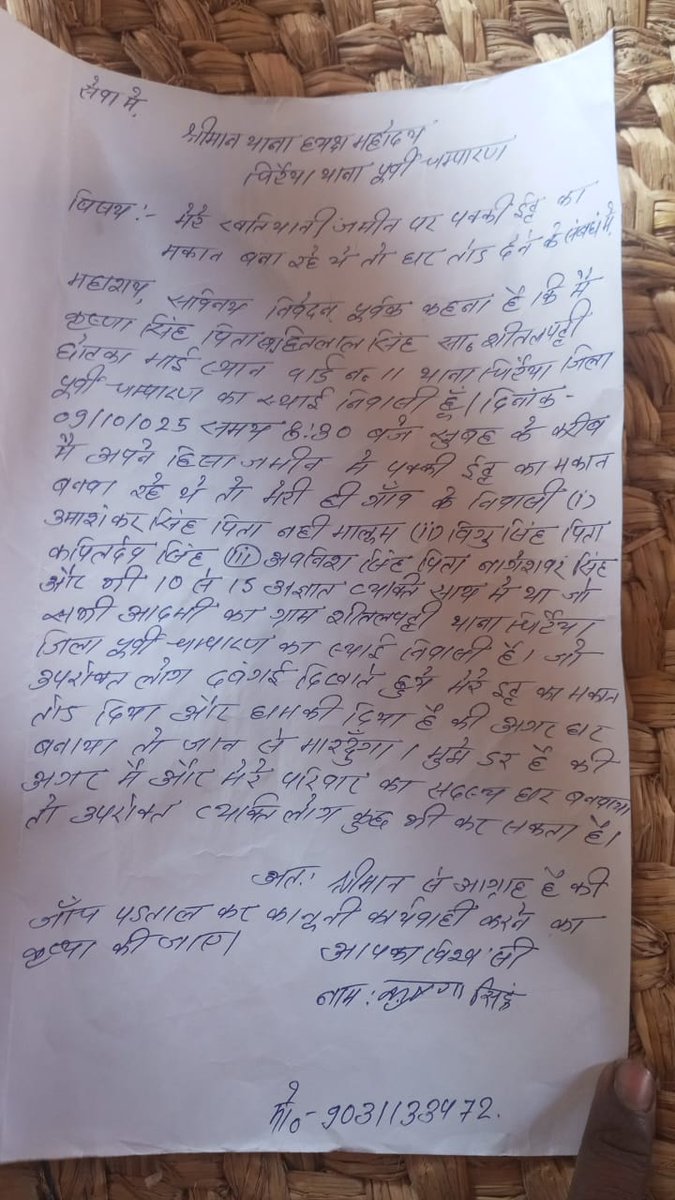 सेवा मे,
श्रीमान थाना ध्यक्ष महोदय
पिपैरया थाना पूर्वी चम्पारण
विषय :- मेरे खतियानी जमीन पर पक्की ईंट का
मकान बना रहे थे तो घर तोड देने के संबंध मे,
महाशय, सविनय निवेदन पूर्वक कहना है कि मै
कृष्णा सिंह पिता सहितलाल सिंह सा० शीतलपट्टी
माई स्थान वार्ड न० 11 थाना जिला
पूर्वी चम्पारण का स्थाई निवासी हूँ। दिनांक -
09/10/025 समय 8:30 बजे सुबह के करीब
मै अपने हिसा जमीन मे पक्की ईंट का मकान
बनवा रहे थे तो मेरी ही गाँव के निवासी (i)
उमाशंकर सिंह पिता नही मालुम (ii) सिंह पिता
कपिलदेव सिंह (iii) अवनिश सिंह पिता नागेशवर सिंह
और भी 10 से 15 अज्ञात व्यक्ति साथ मे था जो
सभी आदमी का ग्राम शीतलपट्टी थाना
जिला पूर्वी चम्पारण का स्थाई निवासी है। जो
उपरोक्त लोग दबंगई दिखाते हुये मेरे ईंट का मकान
तोड दिया और धमकी दिया है की अगर घर
बनाया तो जान से मारदुँगा। मुझे डर है की
अगर मै और मेरे परिवार का सदस्य घर बनवाया
तो उपरोक्त व्यक्ति लोग कुछ भी कर सकता है।
अतः श्रीमान से आग्रह है की
जाँच पडताल कर कानुनी कार्यवाही करने का
कृप्या की जाए।
आपका विश्वासी
नाम : कृष्णा सिंह
मो०-9031133472.